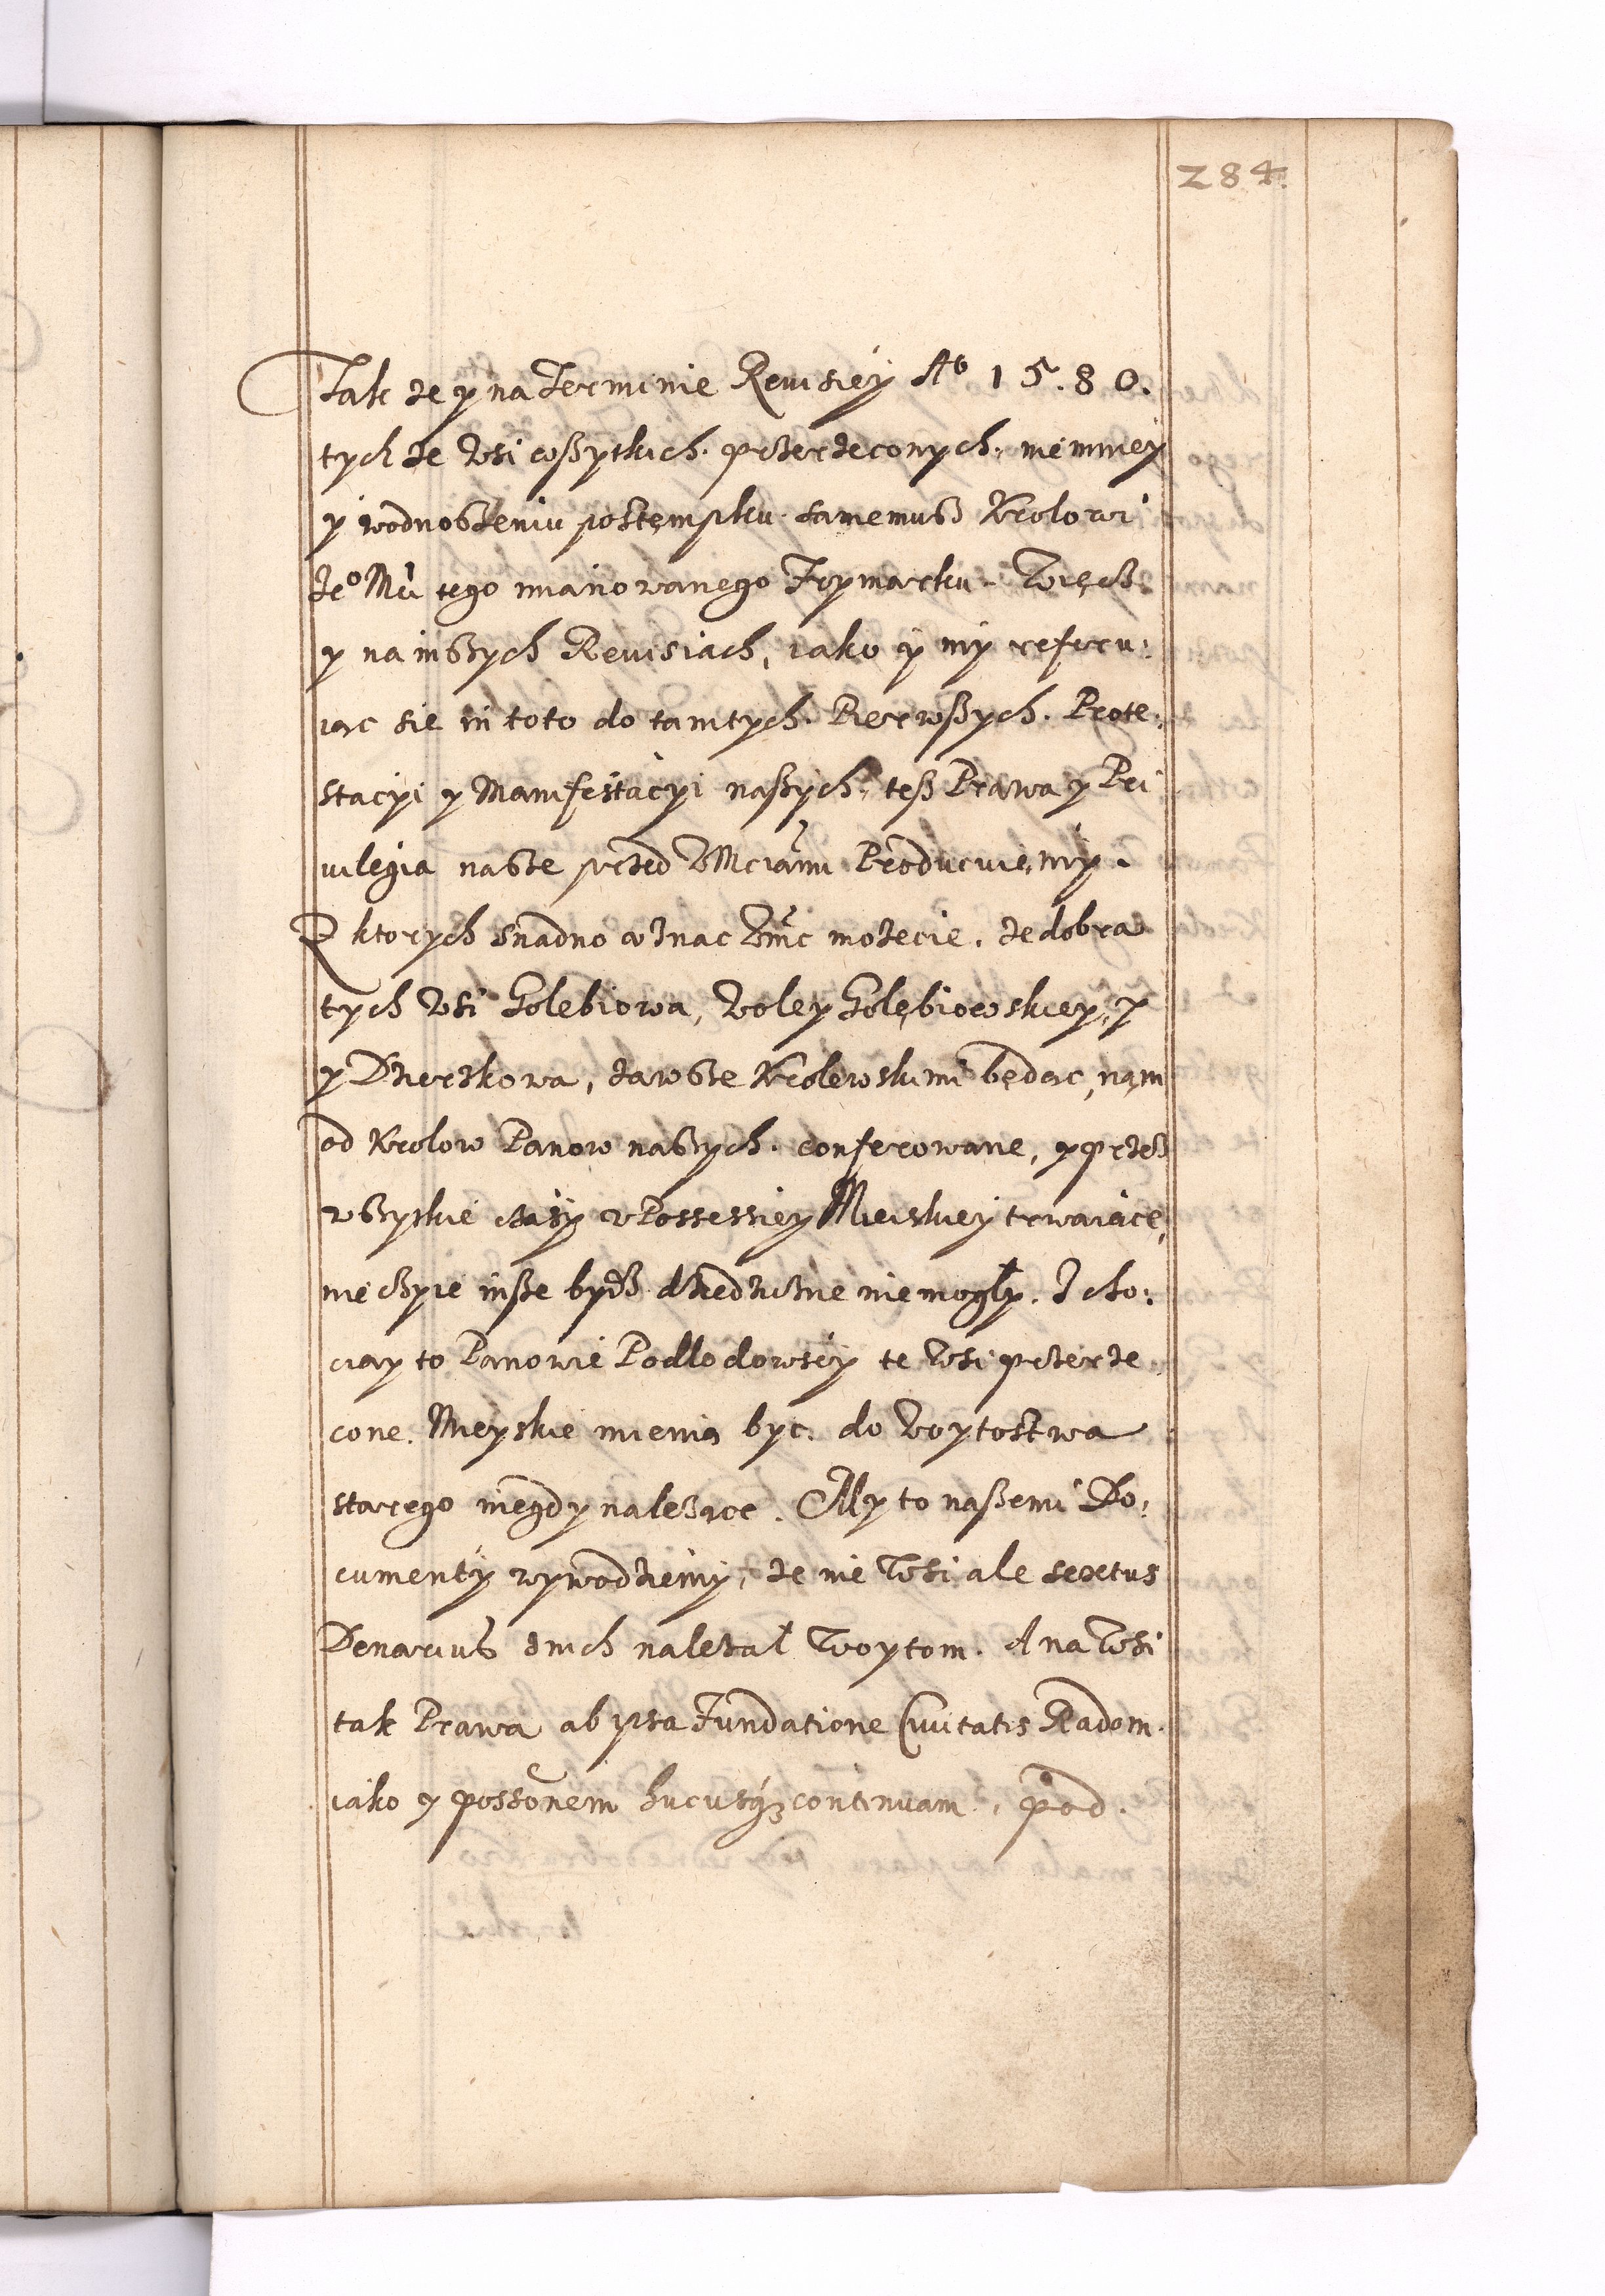 284.
Tak ze y na Terminie Revisiey Aº 1580.
tych ze Wsi wszytkich przerzeconych, niemniey
y w odnoszeniu postempku samemusz Krolowi
Jeº Mci tego mianowanego Frymarku. Więcz
y na inszych Revisiach, iako y my referu:
iąc sie in toto do tamtych Pierwszych Prote:
stacyi y Manifestacyi naszych, tesz Prawa y Pri
vilegia nasze przed WMciami Producuiemy.
Z ktorych snadno uznac Wmc mozecie, ze dobra
tych Wsi Golebiowa, Woley Golębiowskiey, y
y Dzierzkowa, zawsze Krolewskimi będąc, nam
od Krolow Panow naszych conferowane, y przesz
wszyskie czasy w Possessiey Mieiskiey trwaiące,
nieczyie insze bydz dziedziczne niemogły. I cho:
ciay to Panowie Podlodowscy te Wsi przerze
cone Mieyskie mienią byc do Woytostwa
starego niegdy nalezące. My to naszemi Do:
cumenty wywodziemy, ze nie Wsi ale sextus
Denarius znich nalezał Woytom. A na Wsi
tak Prawa ab ipsa Fundatione Civitatis Radom.
iako y possonem hucusq3 continuam, prod.